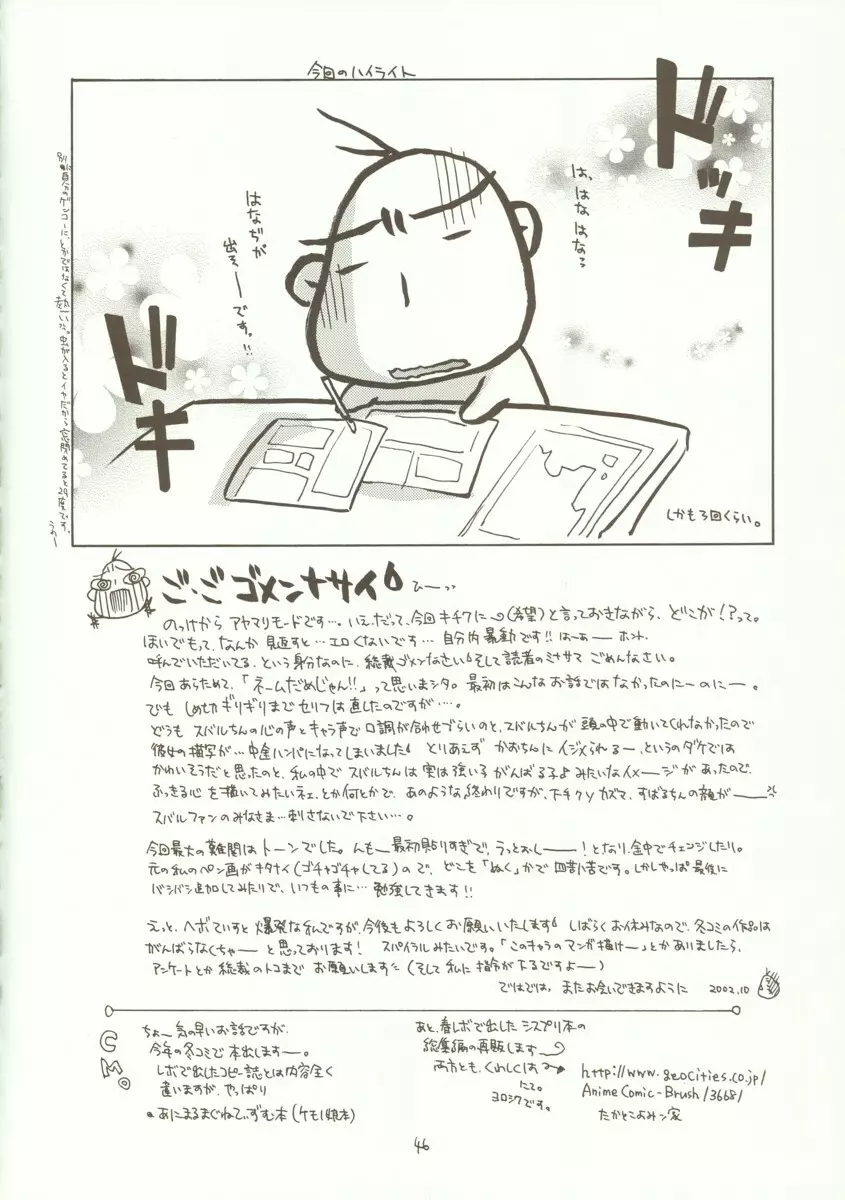 今回のハイライト
ドッキ
は、はなはなろ
はなぢが
出そーですッ!!
ドキ
しかも3回くらい。
別に自分のゲンコーに、とかではなくて熱いた。虫が入るとイヤだから窓閉めてると29度です。うわー
ご・ごゴメンナサイ ひーっっ
のっけから アヤマリモードです…。いえ、だって、今回キチクに(希望)と言っておきながら、どこが!?って。
ほいでもって、なんか 見返すと…エロくないです… 自分内暴動です!! はーぁー ホント、
呼んでいただいてる、という身分なのに、総裁ゴメンなさい そして読者のミナサマ ごめんなさい。
今回あらためて、「ネームだめじゃん!!」って思いまシタ。最初はこんなお話ではなかったのにーのにー。
でも しめ切ギリギリまでセリフは直したのですが…。
どうも スバルちんの心の声とキャラ声で口調が合わせづらいのと、スバルちんが 頭の中で動いてくれなかったので
彼女の描写が…中途ハンパになってしまいました とりあえず かおちんに イジメられるー、というのダケでは
かわいそうだと思ったのと、私の中で スバルちんは 実は強い子 がんばる子♪みたいなイメージがあったので、
ふっきる心を描いてみたいネェ、とか何とかで、あのような終わりですが、
スバルファンのみなさま…刺さないで下さい…。
今回最大の難関はトーンでした。んもー最初貼りすぎで、うっとおしー!となり、途中でチェンジしたり。
元の私のペン画がキタナイ(ゴチャゴチャしてる)ので、どこを「ぬく」かで四苦八苦です。しかしやっぱ最後に
バシバシ追加してみたりで、いつもの事に… 勉強してきます!!
えっと、ヘボていすと爆発な私ですが、今後もよろしくお願いいたします しばらくお休みなので、冬コミの作品は
がんばらなくちゃーと思っております! スパイラルみたいです。「このキャラのマンガ描けー」とかありましたら、
アンケートとか総裁のトコまで お願いします (そして私に指令が下るですよー)
ではでは、またお会いできますように 2002.10
CM。
ちょー気の早いお話ですが、
今年の冬コミで本出しますー。
レボで出したコピー誌とは内容全く
違いますが、やっぱり
●あにまるまぐねてぃずむ本(ケモノ娘本)
あと、春レボで出した シスプリ本の
総集編の再販します
両方とも、くわしくは→
http://www.geocities.co.jp/
AnimeComic-Brush/3668/
たかとこよみン家
にて。
ヨロシクです。
46